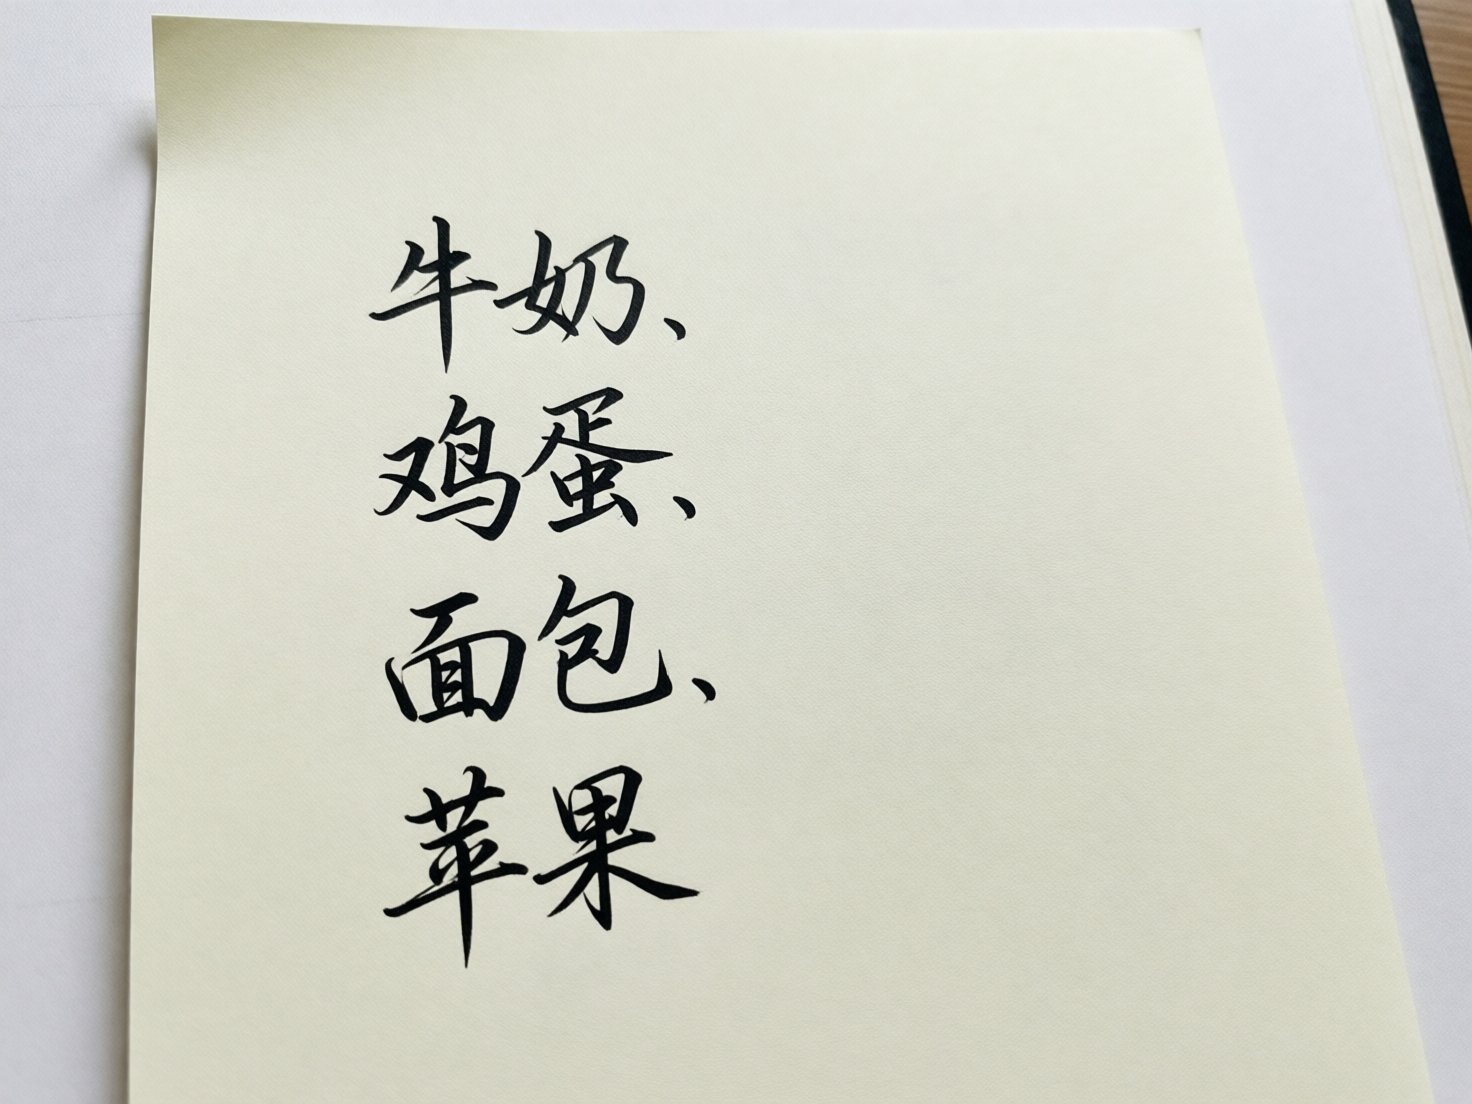 牛奶、
鸡蛋、
面包、
苹果